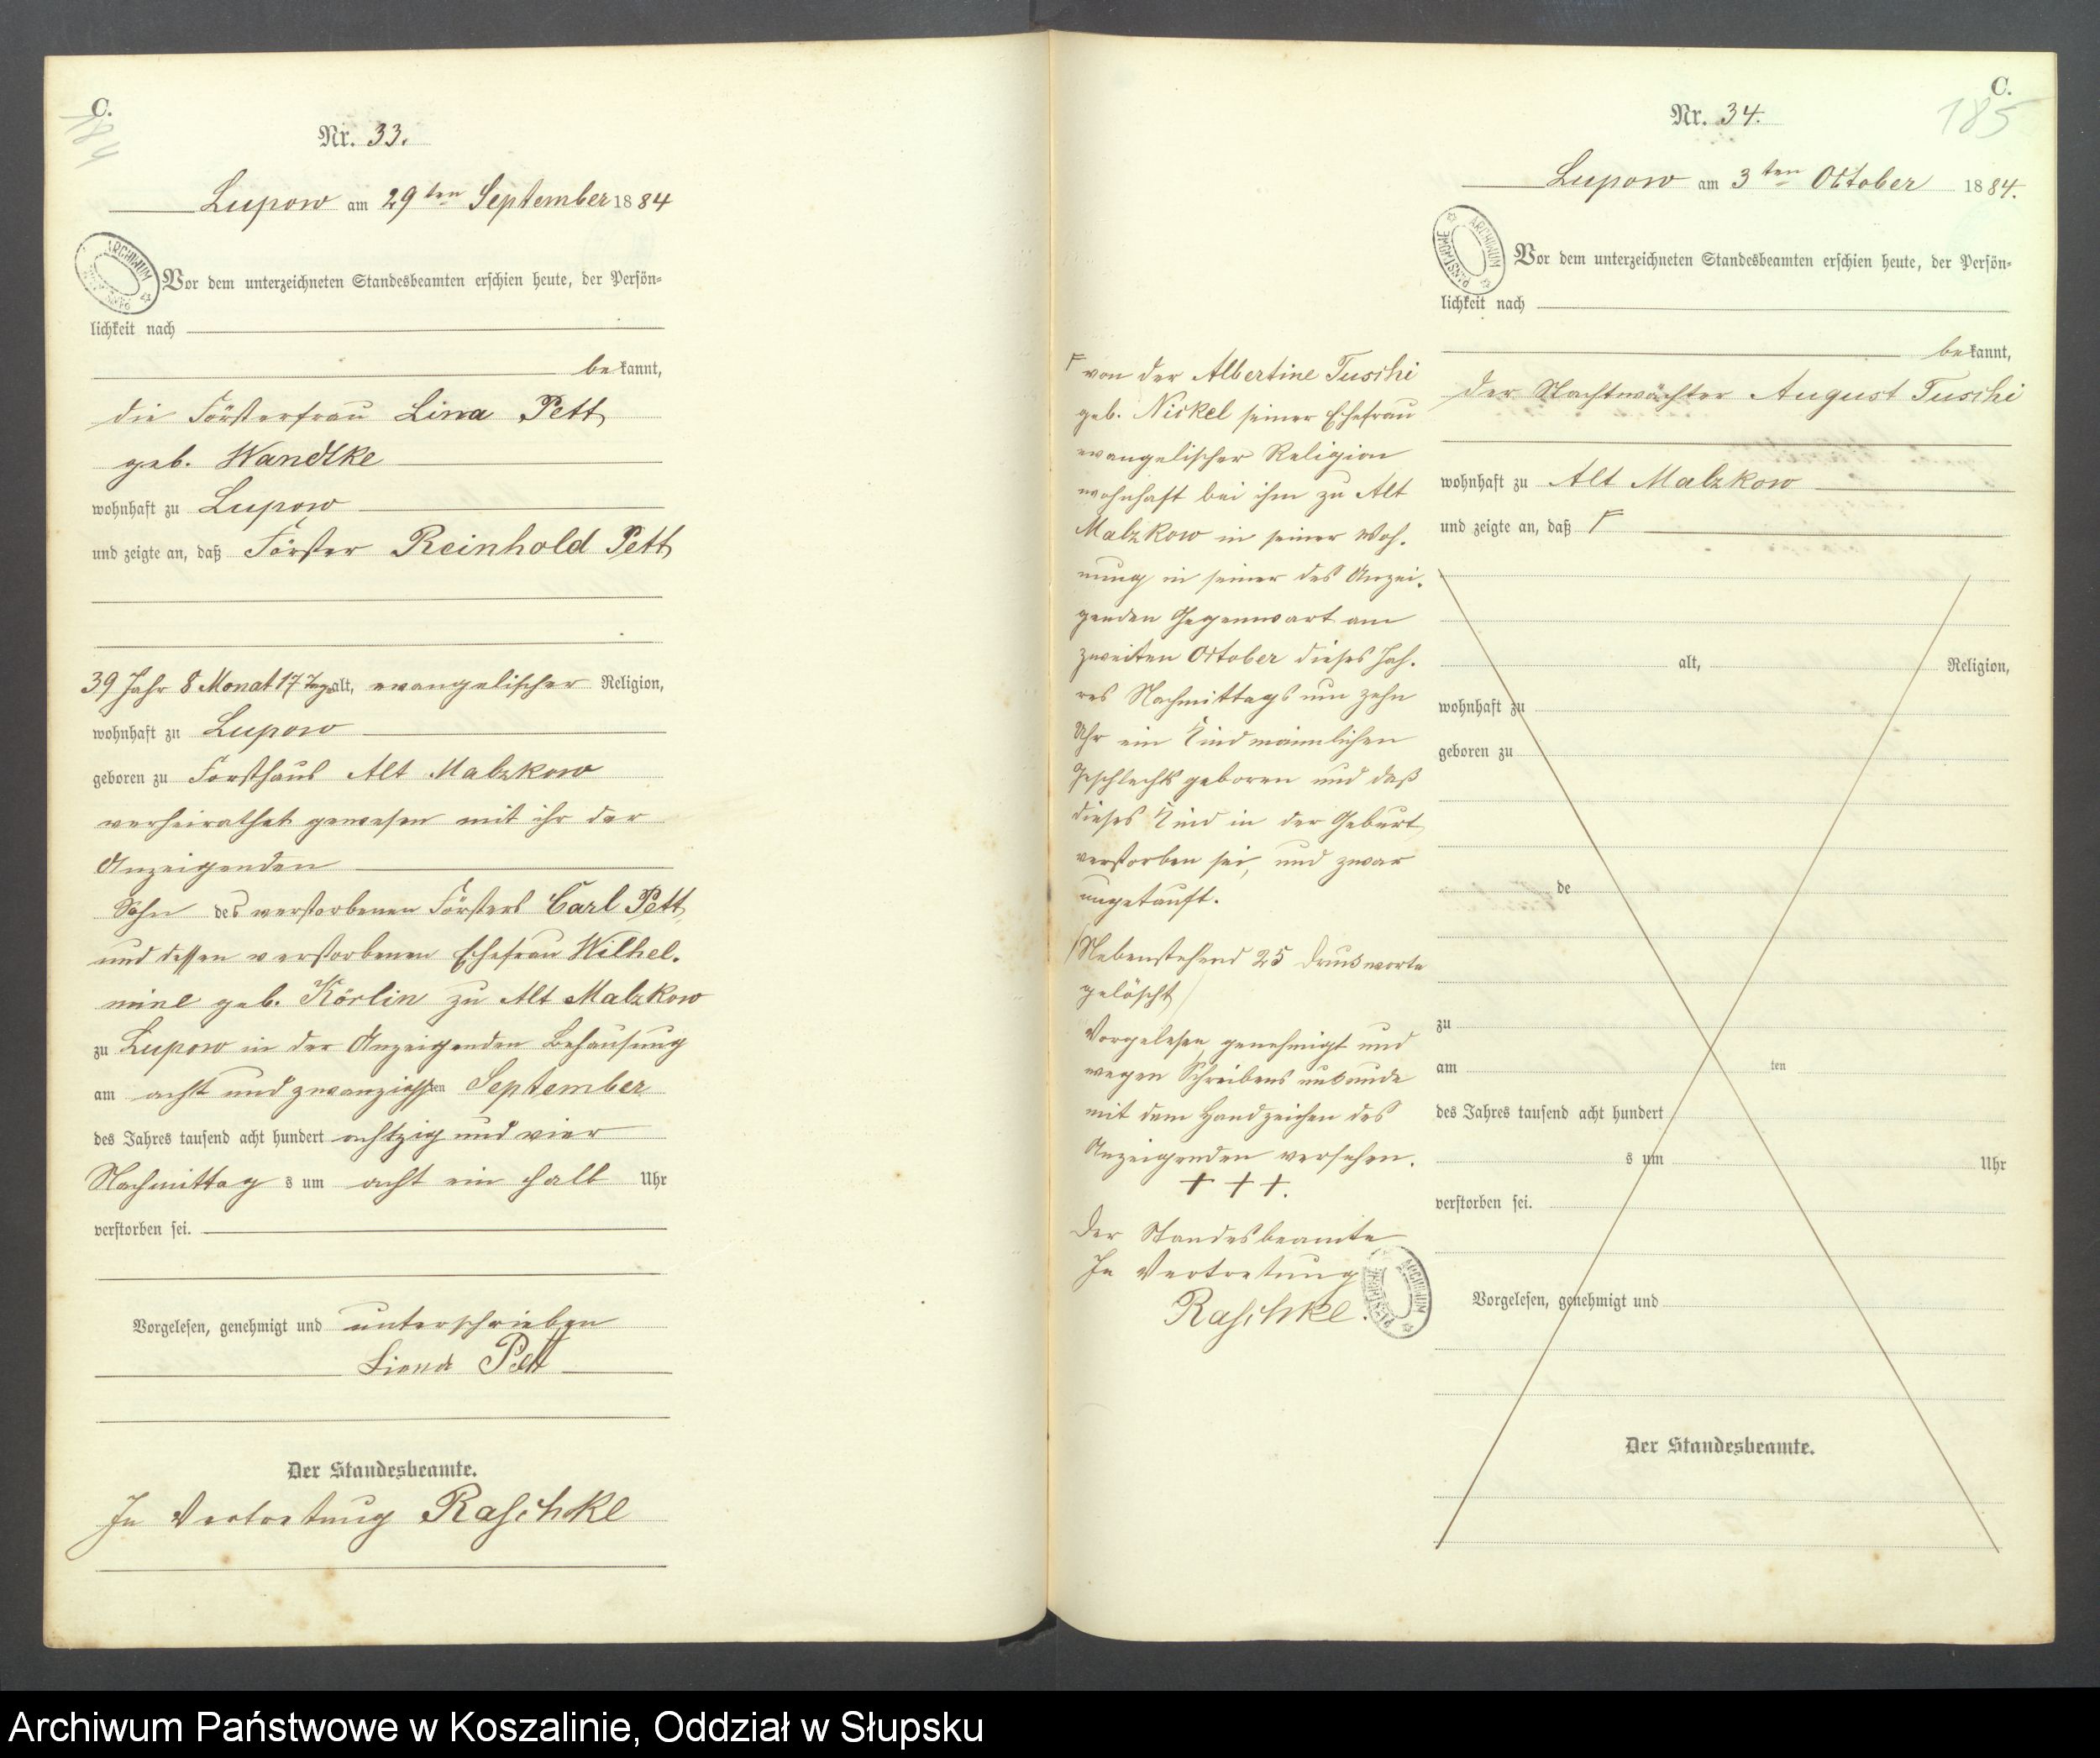 C.
184
Nr. 33.
Lupow am 29ten September 1884
Vor dem unterzeichneten Standesbeamten erschien heute, der Persön-
lichkeit nach
bekannt,
die Försterfrau Lina Pett
geb. Wandtke
wohnhaft zu Lupow
und zeigte an, daß Förster Reinhold Pett
39 Jahr 8 Monat 17 Tage alt, evangelischer Religion,
wohnhaft zu Lupow
geboren zu Forsthaus Alt Malzkow
verheirathet gewesen mit ihr der
Anzeigenden
Sohn des verstorbenen Försters Carl Pett
und dessen verstorbenen Ehefrau Wilhel-
mine geb. Körlin zu Alt Malzkow
zu Lupow in der Anzeigenden Behausung
am acht und zwanzigsten September
des Jahres tausend acht hundert achtzig und vier
Nachmittags um acht ein halb Uhr
verstorben sei.
Vorgelesen, genehmigt und unterschrieben
Pett
Der Standesbeamte.
In Vertretung Raschke
C.
185
Nr. 34.
Lupow am 3ten October 1884.
ARCHIWUM PAŃSTWOWE
Vor dem unterzeichneten Standesbeamten erschien heute, der Persön-
lichkeit nach
bekannt,
der Nachtwächter August Tuschi
wohnhaft zu Alt Malzkow
und zeigte an, daß Γ
Γ von der Albertine Tuschi
geb. Nickel seiner Ehefrau
evangelischer Religion
wohnhaft bei ihm zu Alt
Malzkow in seiner Woh-
nung in seiner des Anzei-
genden Gegenwart am
zweiten October dieses Jah-
res Nachmittags um zehn
Uhr ein Kind männlichen
Geschlechts geboren und daß
dieses Kind in der Geburt
verstorben sei, und zwar
ungetauft.
/Nebenstehend 25 Druckworte
gelöscht/
Vorgelesen genehmigt und
wegen Schreibens unkunde
mit dem Handzeichen des
Anzeigenden versehen.
+ + +.
Der Standesbeamte
In Vertretung
Raschke.
alt, Religion,
wohnhaft zu
geboren zu
de
zu
am ten
des Jahres tausend acht hundert
s um Uhr
verstorben sei.
Vorgelesen, genehmigt und
Der Standesbeamte.
Archiwum Państwowe w Koszalinie, Oddział w Słupsku